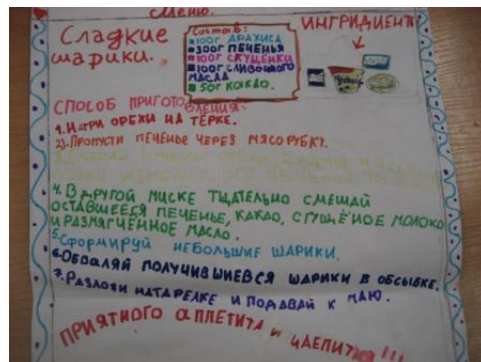 Меню.
Сладкие
шарики.
Состав:
100г АРАХИСА
300г ПЕЧЕНЬЯ
100г СГУЩЕНКИ
100г СЛИВОЧНОГО
МАСЛА
50г КАКАО.
ИНГРИДИЕНТЫ
СПОСОБ ПРИГОТОВЛЕНИЯ:
1. НАТРИ ОРЕХИ НА ТЁРКЕ.
2). ПРОПУСТИ ПЕЧЕНЬЕ ЧЕРЕЗ МЯСОРУБКУ.
4. В ДРУГОЙ МИСКЕ ТЩАТЕЛЬНО СМЕШАЙ
ОСТАВШЕЕСЯ ПЕЧЕНЬЕ, КАКАО, СГУЩЁНОЕ МОЛОКО
И РАЗМЯГЧЁННОЕ МАСЛО.
5. СФОРМИРУЙ НЕБОЛЬШИЕ ШАРИКИ.
6. ОБВАЛЯЙ ПОЛУЧИВШИЕВСЯ ШАРИКИ В ОБСЫВКЕ.
7. РАЗЛОЖИ НА ТАРЕЛКЕ И ПОДАВАЙ К ЧАЮ.
ПРИЯТНОГО АППЕТИТА И ЧАЕПИТИЯ!!!